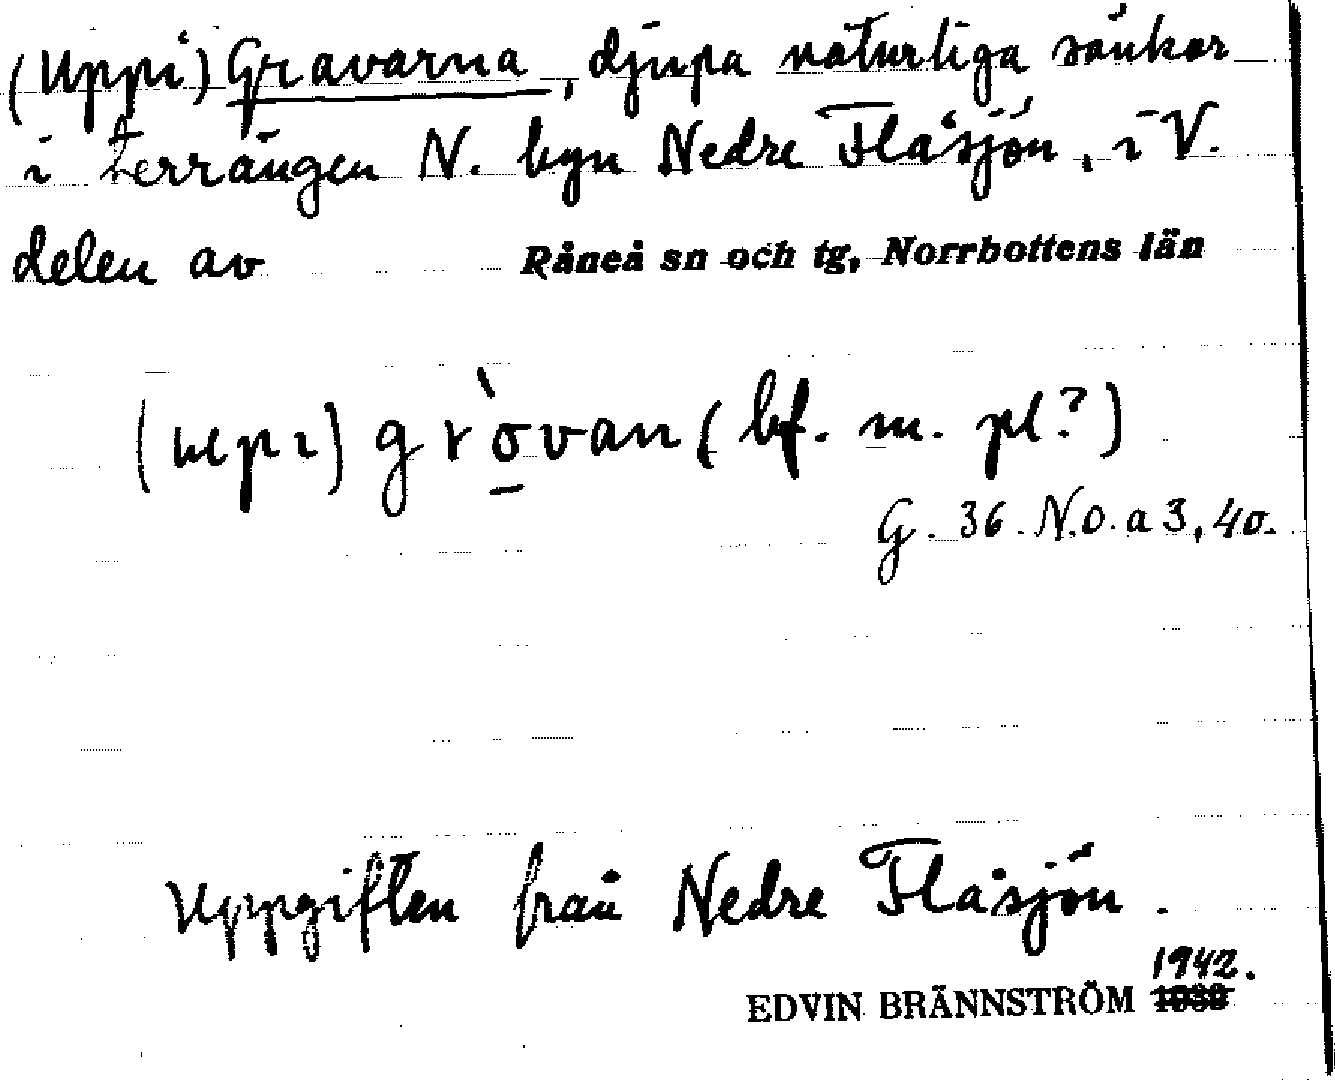 (Uppi) Gravarna, djupa naturliga sänkor
i terrängen N. byn Nedre Flåsjön, i V.
delen av Råneå sn och tg, Norrbottens län
(upi) gròvan (bf. m. pl?)
G. 36. N.O. a 3, 40.
Uppgiften från Nedre Flåsjön.
1942.
EDVIN BRÄNNSTRÖM